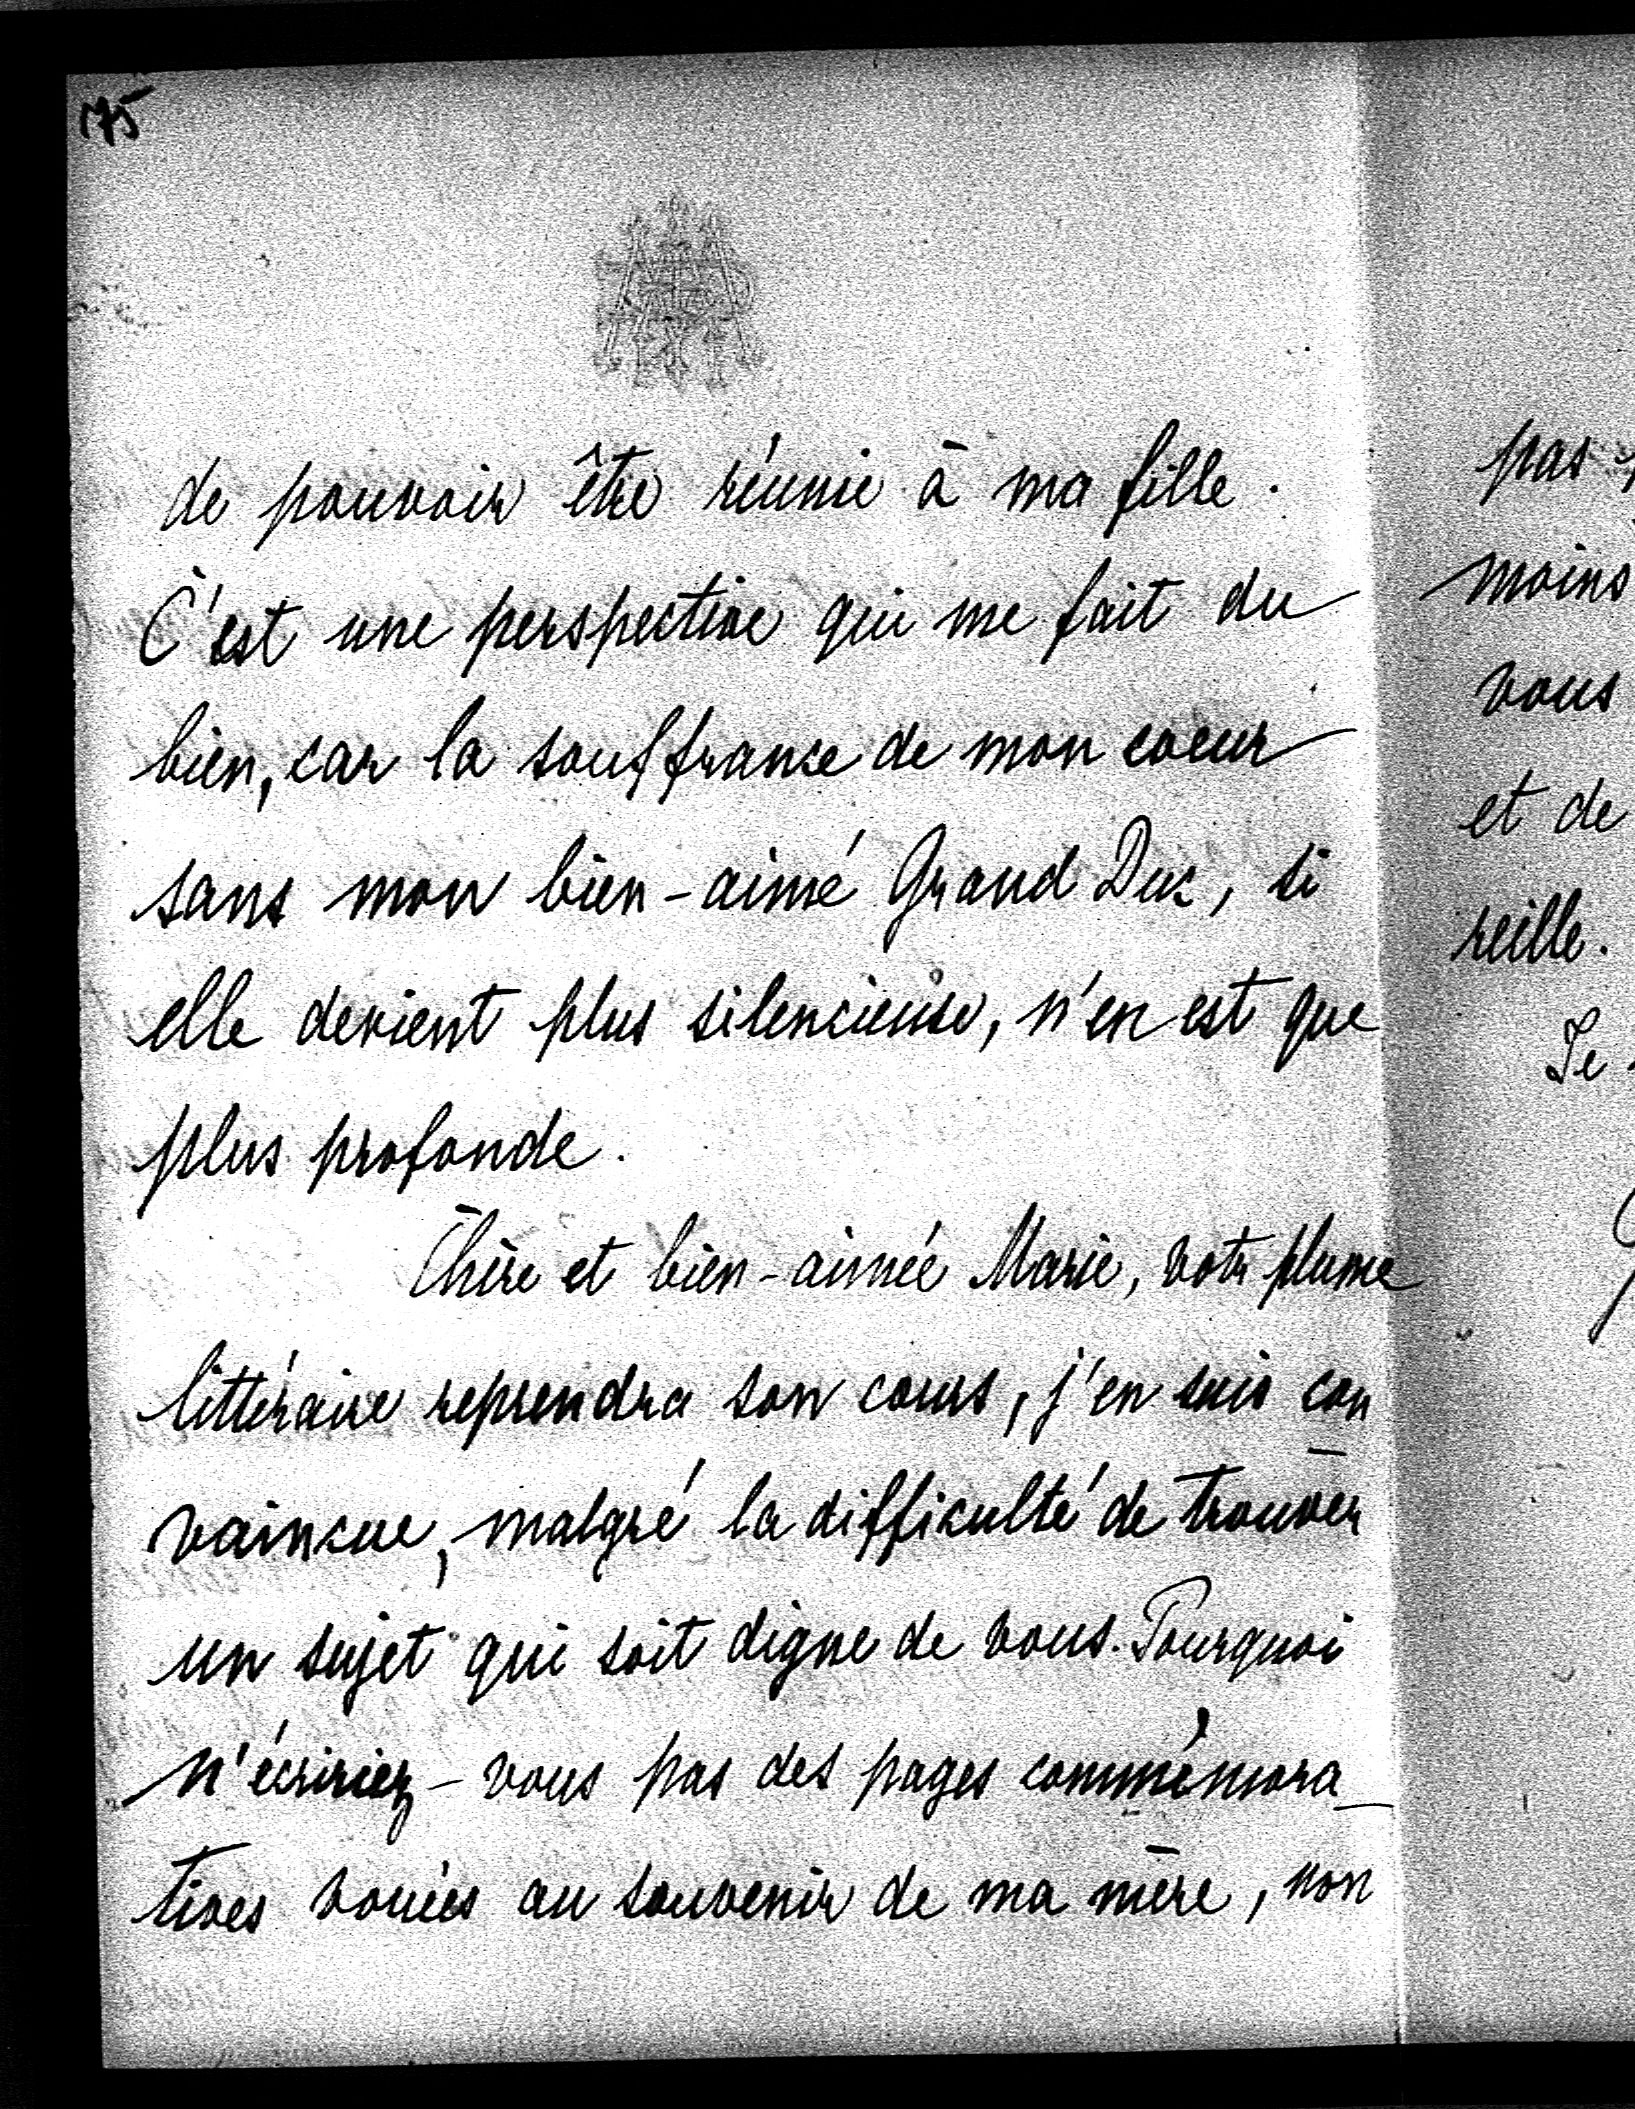 175
de pouvoir être réunie à ma fille.
C'est une perspective qui me fait du
bien, car la souffrance de mon coeur
sans mon bien-aimé Grand Duc, si
elle devient plus silencieuse, n'en est que
plus profonde.
Chère et bien-aimée Marie, votr plume
littéraire reprendra son cours, j'en suis con
vaincue, malgré la difficulté de trouver
un sujet qui soit digne de vous. Pourquoi
n'écririez-vous pas des pages commémora_
tives vouées au souvenir de ma mère, non
pas
moins
vous
et de
reille.
Je